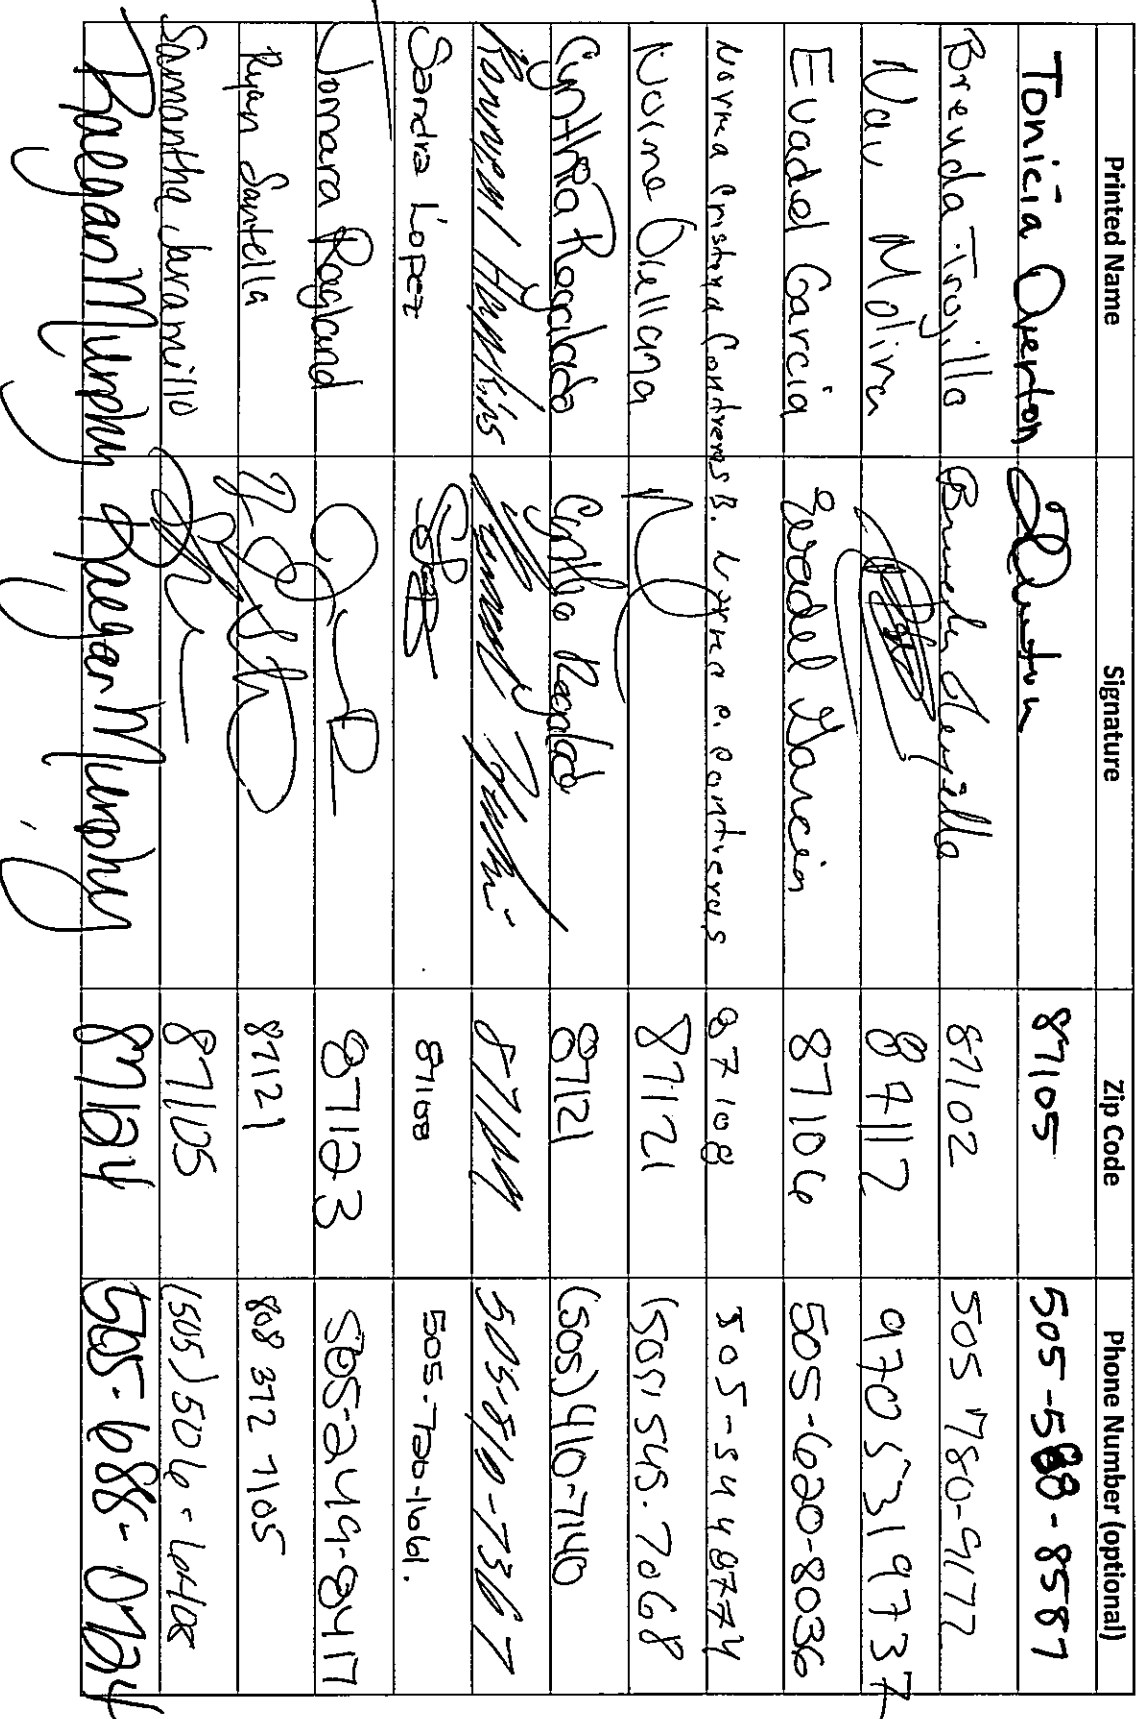 Printed Name Signature Zip Code Phone Number (optional)
Tonicia Overton 87105 505-588-8587
Brenda Trujillo Brenda Trujillo 87102 505 780-9177
Nav Molina 87112 970 531 9737
Evadel Garcia Evadel Garcia 87106 505-620-8036
Norma Cristina Contreras B. Norma C. Contreras 87108 505-544 8774
Norma Orellana 87121 (505) 545.7068
Cynthia Regalado Cynthia Regalado 87121 (505) 410-7140
Hopkins 87144 505-810-7367
Sandra Lopez 87108 505-720-1661.
Jomara Ragland 87123 505-244-8417
Ryan Santella 87121 808 372 7105
Samantha Jaramillo 87105 (505) 506-6408
Raegan Murphy Raegan Murphy 87124 505-688-0724